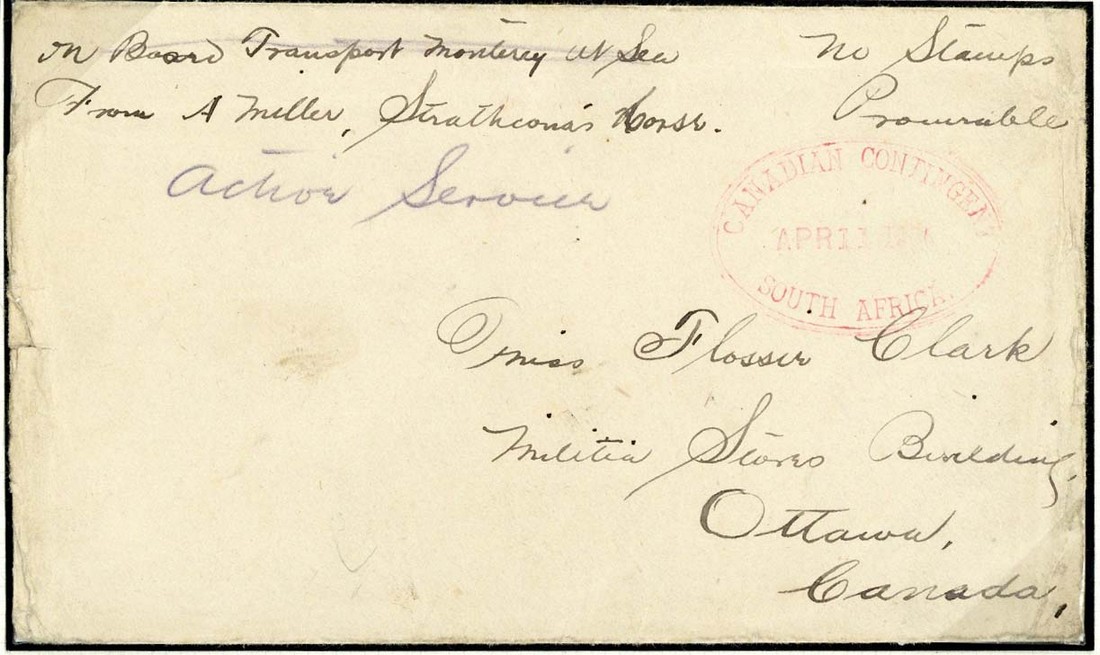 On Board Transport Monterey At Sea
From A Miller, Strathcona's Horse.
No Stamps
Procurable
Active Service
CANADIAN CONTINGENT
APRIL
SOUTH AFRICA.
Miss Flossie Clark
Militia Stores Building,
Ottawa,
Canada,